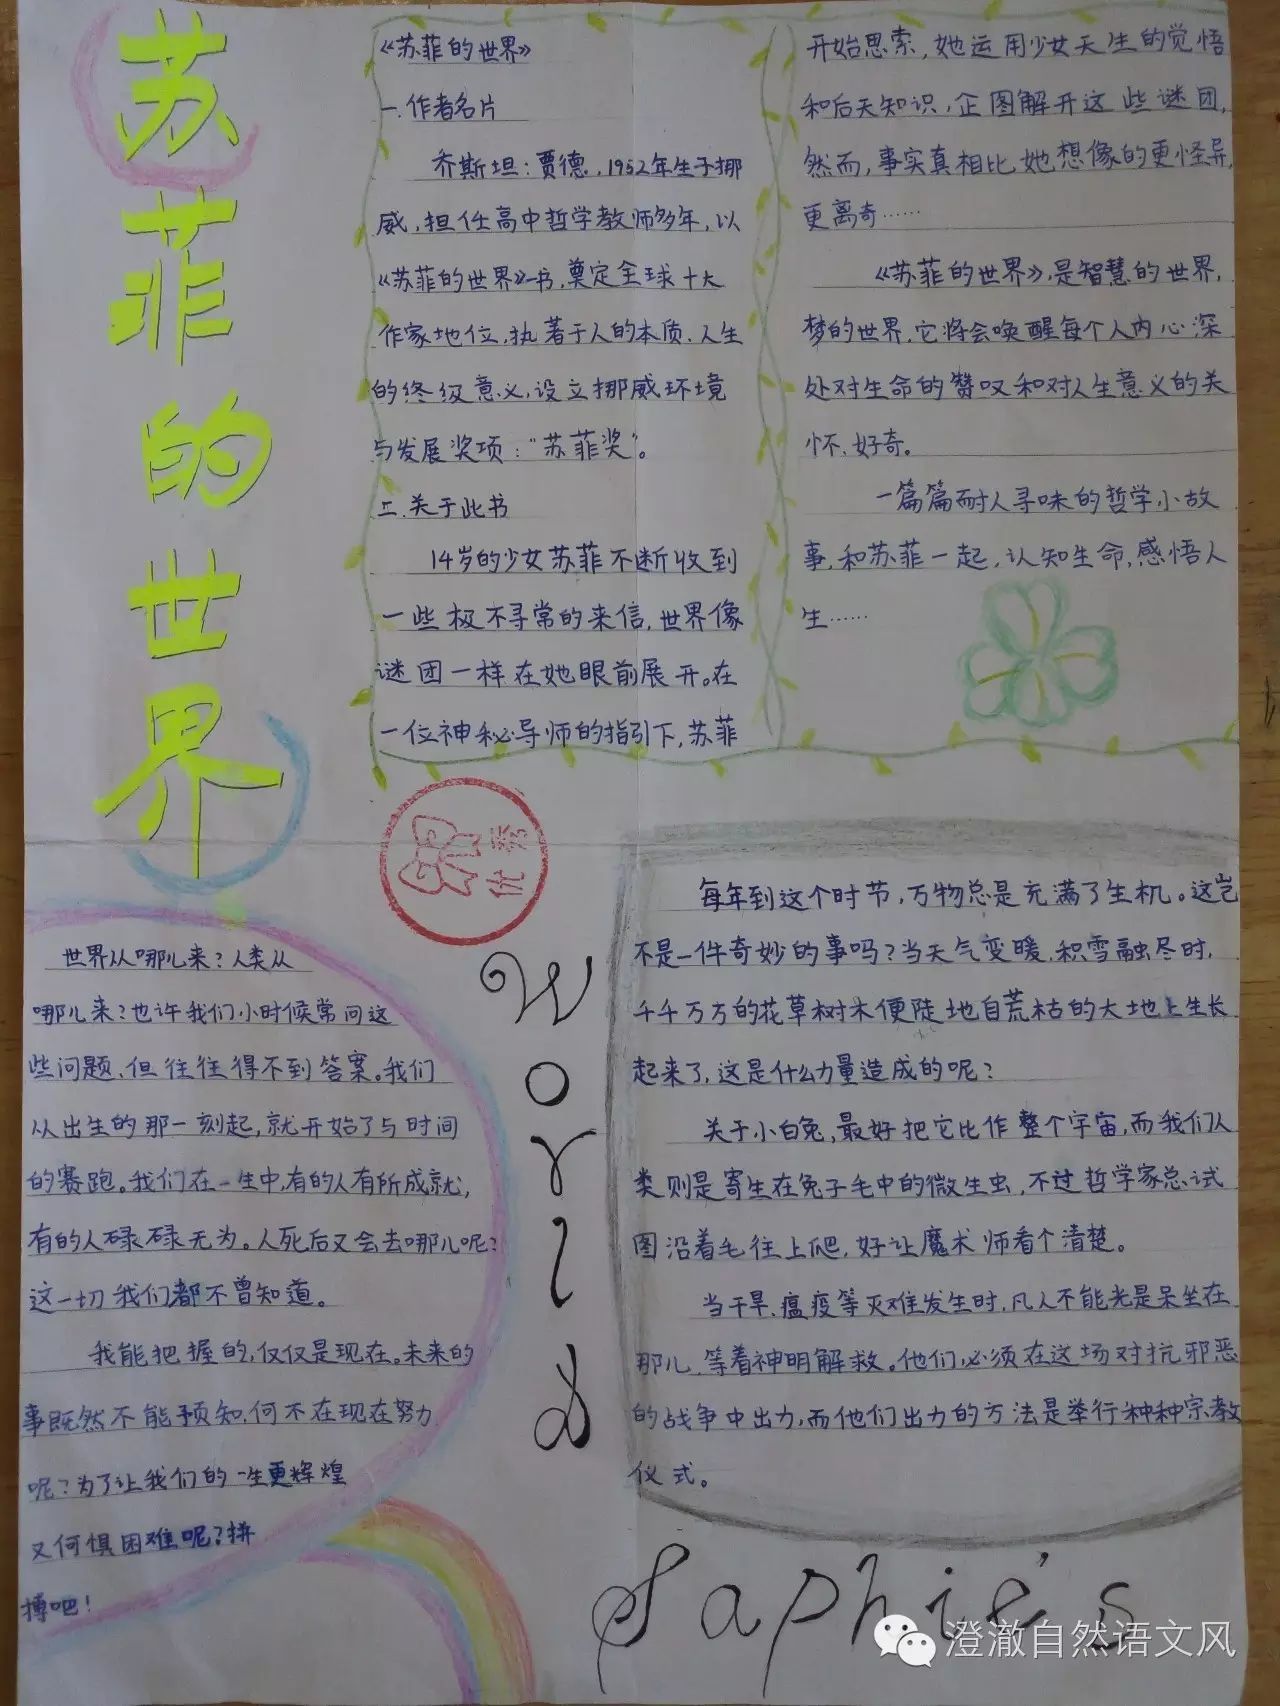 苏菲的世界
《苏菲的世界》
一.作者名片
乔斯坦:贾德,1952年生于挪
威,担任高中哲学教师多年,以
《苏菲的世界》一书,奠定全球十大
作家地位,执著于人的本质、人生
的终级意义,设立挪威环境
与发展奖项:“苏菲奖”。
二.关于此书
14岁的少女苏菲不断收到
一些极不寻常的来信,世界像
谜团一样在她眼前展开。在
一位神秘导师的指引下,苏菲
开始思索,她运用少女天生的觉悟
和后天知识,企图解开这些谜团,
然而,事实真相比她想像的更怪异,
更离奇……
《苏菲的世界》,是智慧的世界,
梦的世界,它将会唤醒每个人内心深
处对生命的赞叹和对人生意义的关
怀、好奇。
一篇篇耐人寻味的哲学小故
事,和苏菲一起,认知生命,感悟人
生……
优秀
世界从哪儿来?人类从
哪儿来?也许我们小时候常问这
些问题,但往往得不到答案。我们
从出生的那一刻起,就开始了与时间
的赛跑。我们在一生中,有的人有所成就,
有的人碌碌无为。人死后又会去哪儿呢?
这一切我们都不曾知道。
我能把握的,仅仅是现在。未来的
事既然不能预知,何不在现在努力
呢?为了让我们的一生更辉煌
又何惧困难呢?拼
搏吧!
World
每年到这个时节,万物总是充满了生机。这岂
不是一件奇妙的事吗?当天气变暖,积雪融尽时,
千千万万的花草树木便陡地自荒枯的大地上生长
起来了,这是什么力量造成的呢?
关于小白兔,最好把它比作整个宇宙,而我们人
类则是寄生在兔子毛中的微生虫,不过哲学家总试
图沿着毛往上爬,好让魔术师看个清楚。
当干旱、瘟疫等灾难发生时,凡人不能光是呆坐在
那儿,等着神明解救。他们必须在这场对抗邪恶
的战争中出力,而他们出力的方法是举行种种宗教
仪式。
Saphie's
澄澈自然语文风